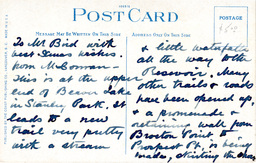 POST CARD
MESSAGE MAY BE WRITTEN ON THIS SIDE
ADDRESS ONLY ON THIS SIDE
POSTAGE
To Mr Bird with
best Xmas wishes
from McGowan —
This is at the upper
end of Beaver Lake
in Stanley Park. It
leads to a new
trail very pretty
with a stream
& little waterfalls
all the way to the
Reservoir. Many
other trails & roads
have been opened up,
& a promenade &
retaining wall from
Brockton Point to
Prospect Pt. is being
made, skirting the